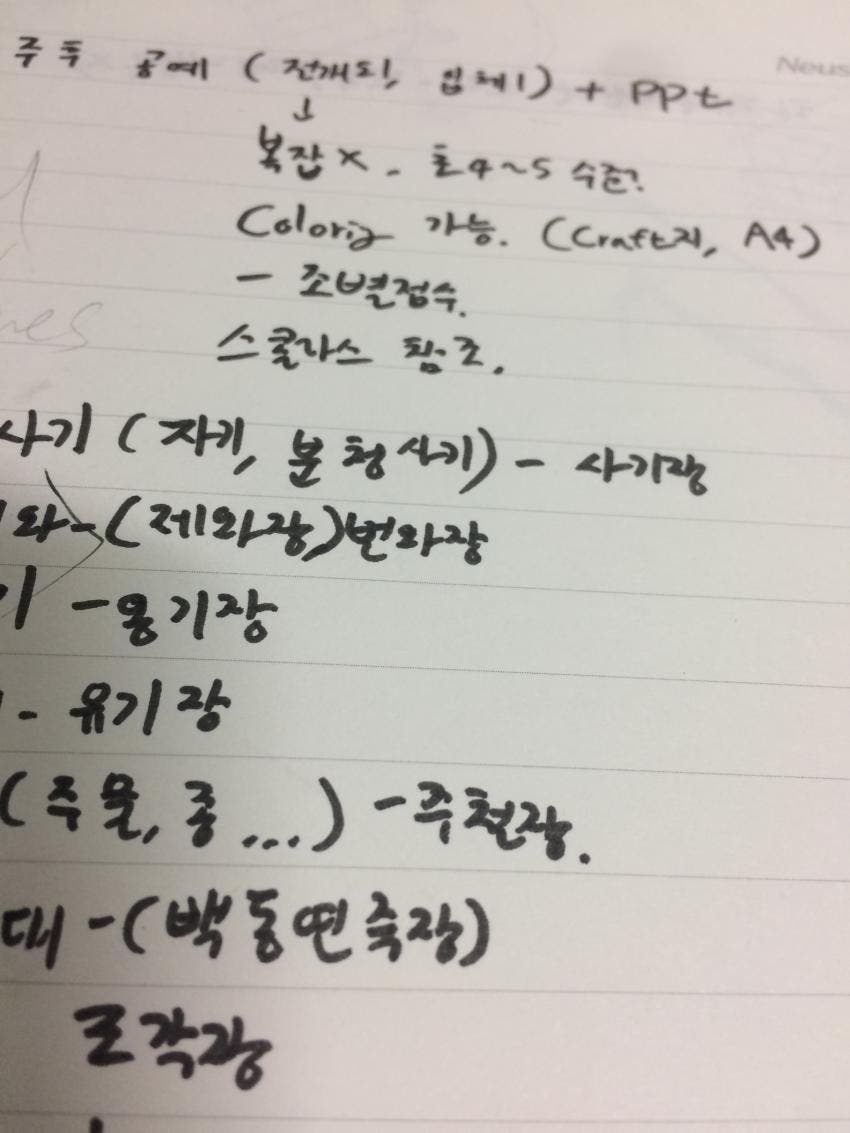 Neus
주 두 공예 (전개도, 입체) + PPt
↓
복잡 x. 초4~5 수준.
Coloring 가능. (Craft지, A4)
- 조별점수.
스콜라스 참조.
사기 (자기, 분청사기) - 사기장
와 - (제와장) 번와장
- 옹기장
- 유기장
(주물, 종 ...) - 주철장.
대 - (백동연죽장)
조각장